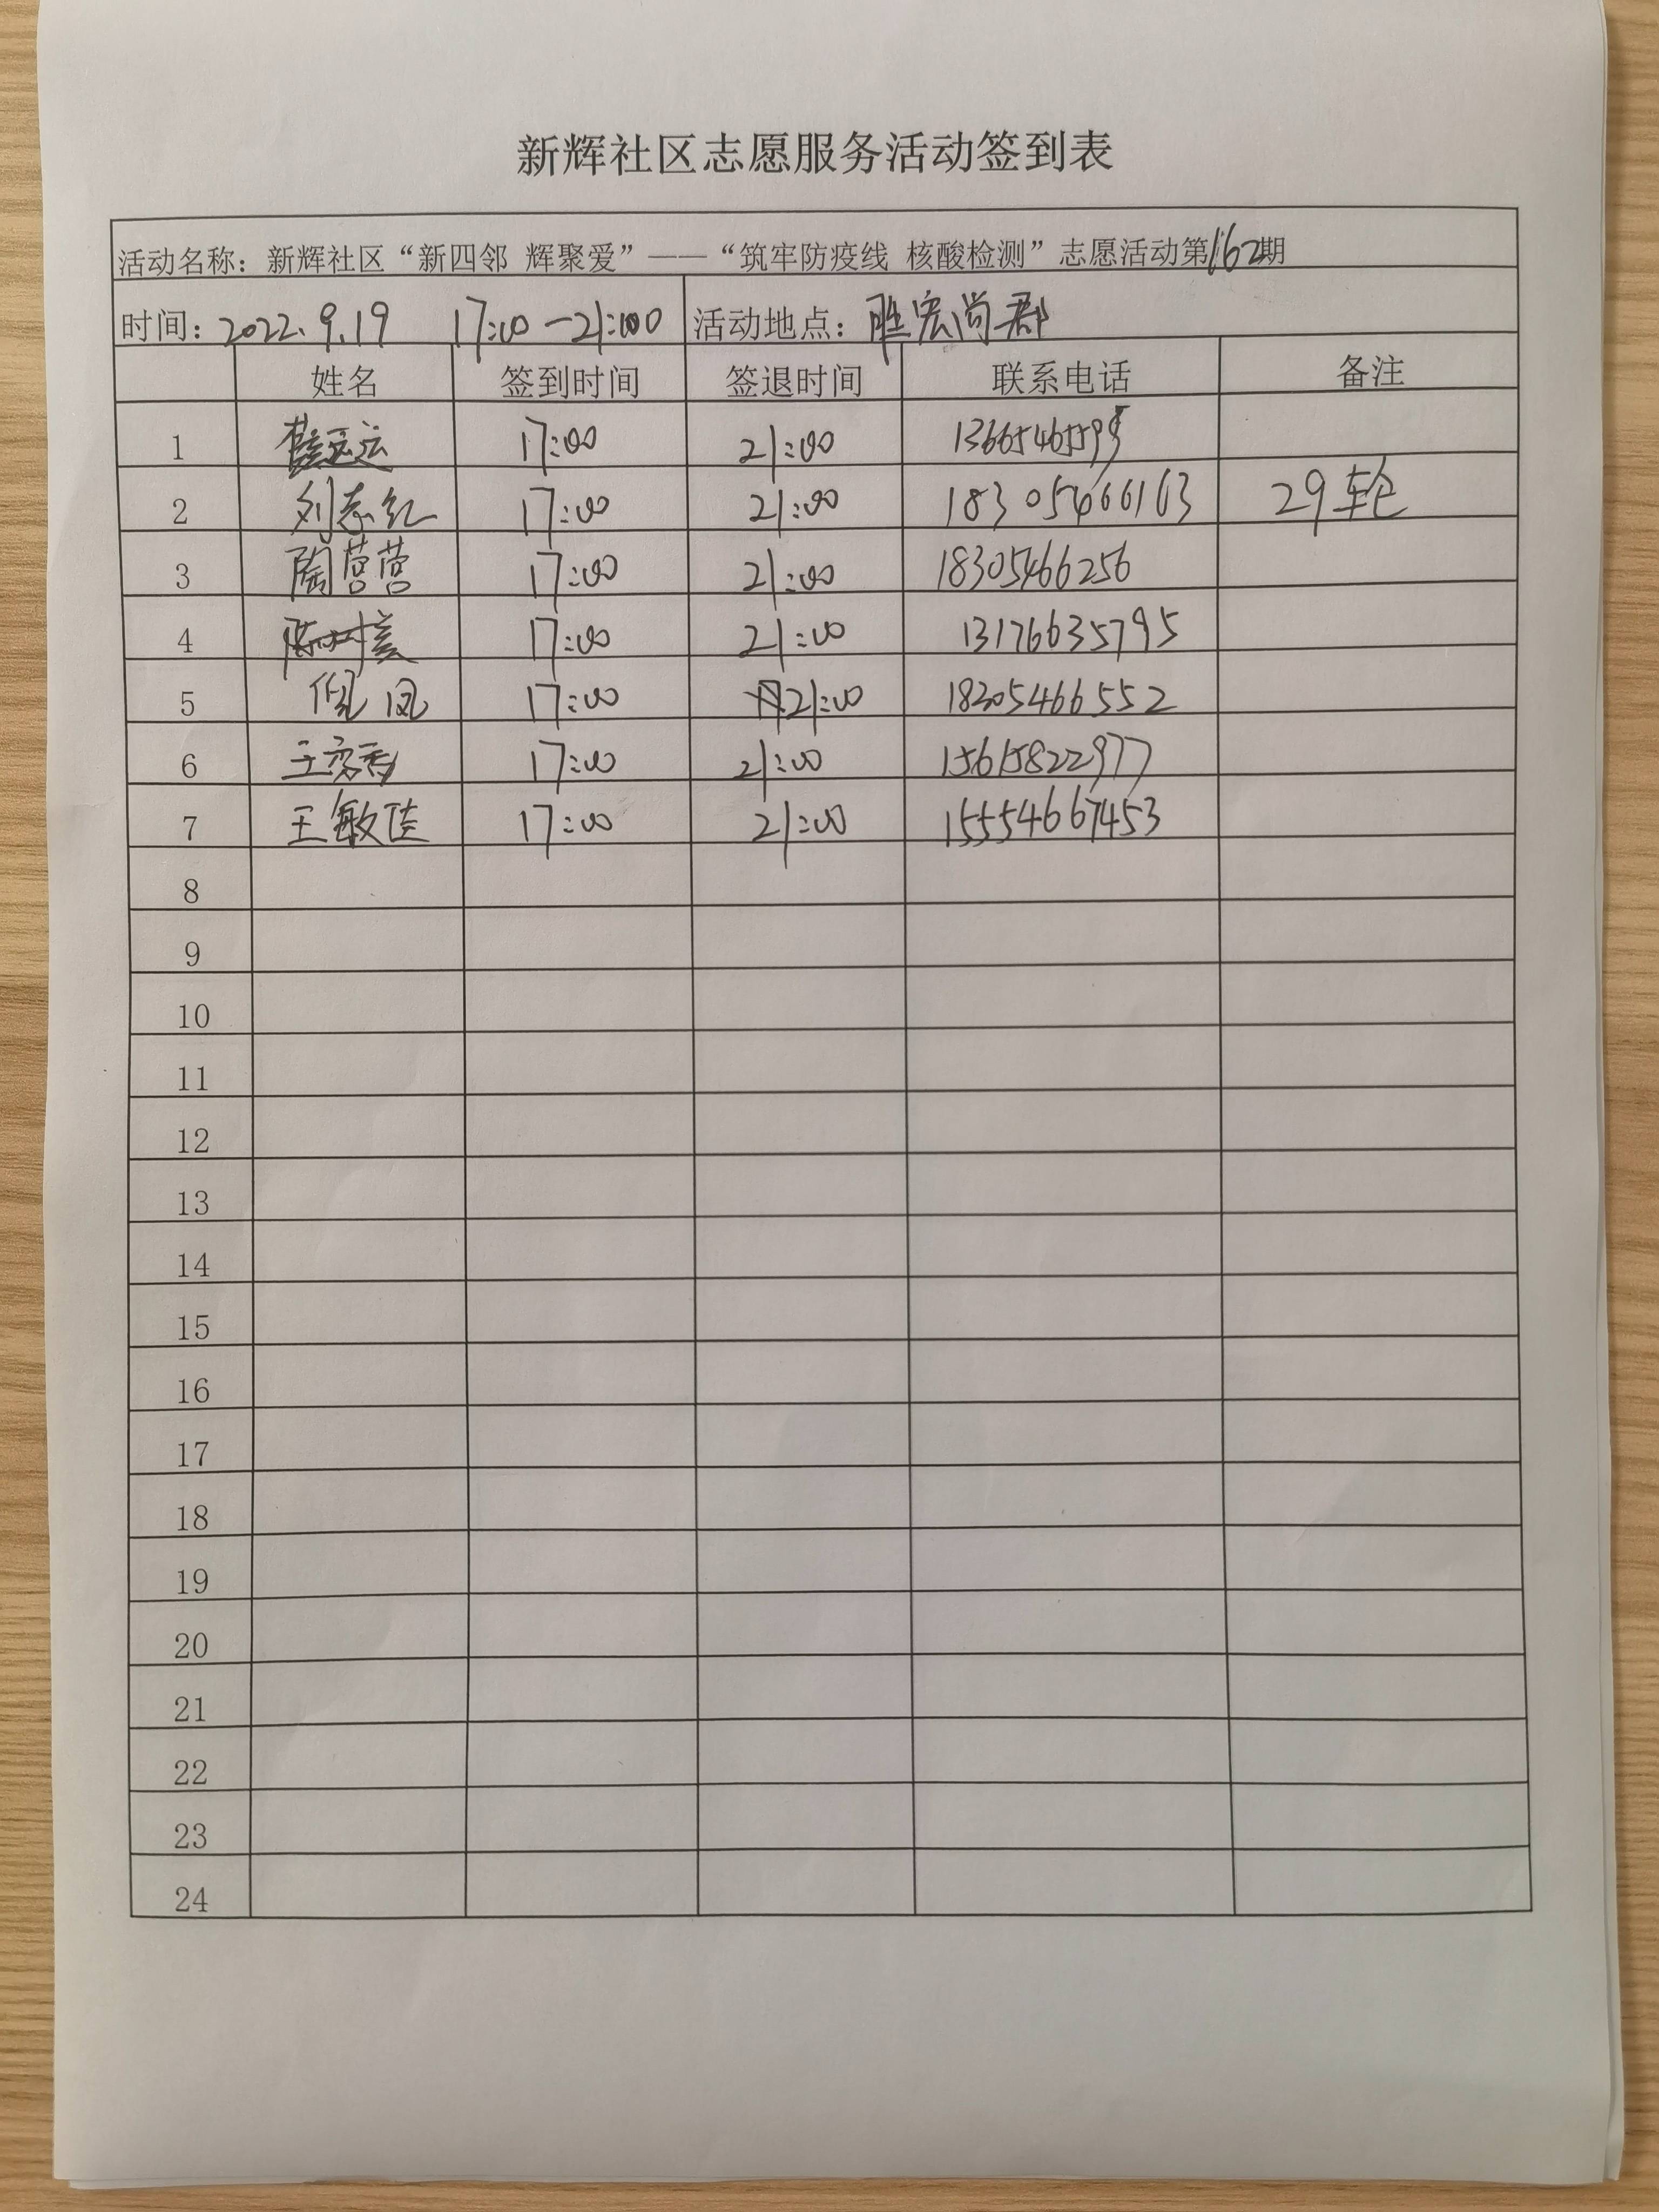 新辉社区志愿服务活动签到表
活动名称：新辉社区“新四邻 辉聚爱”——“筑牢防疫线 核酸检测”志愿活动第162期
时间：2022.9.19 17:00-21:00 活动地点：胜宏尚郡
姓名 签到时间 签退时间 联系电话 备注
1 17:00 21:00
2 刘志红 17:00 21:00 18305466163 29轮
3 陶营营 17:00 21:00 18305466256
4 17:00 21:00 13176635795
5 倪凤 17:00 21:00 18305466552
6 17:00 21:00 15615822977
7 王敏佳 17:00 21:00 15554667453
8
9
10
11
12
13
14
15
16
17
18
19
20
21
22
23
24